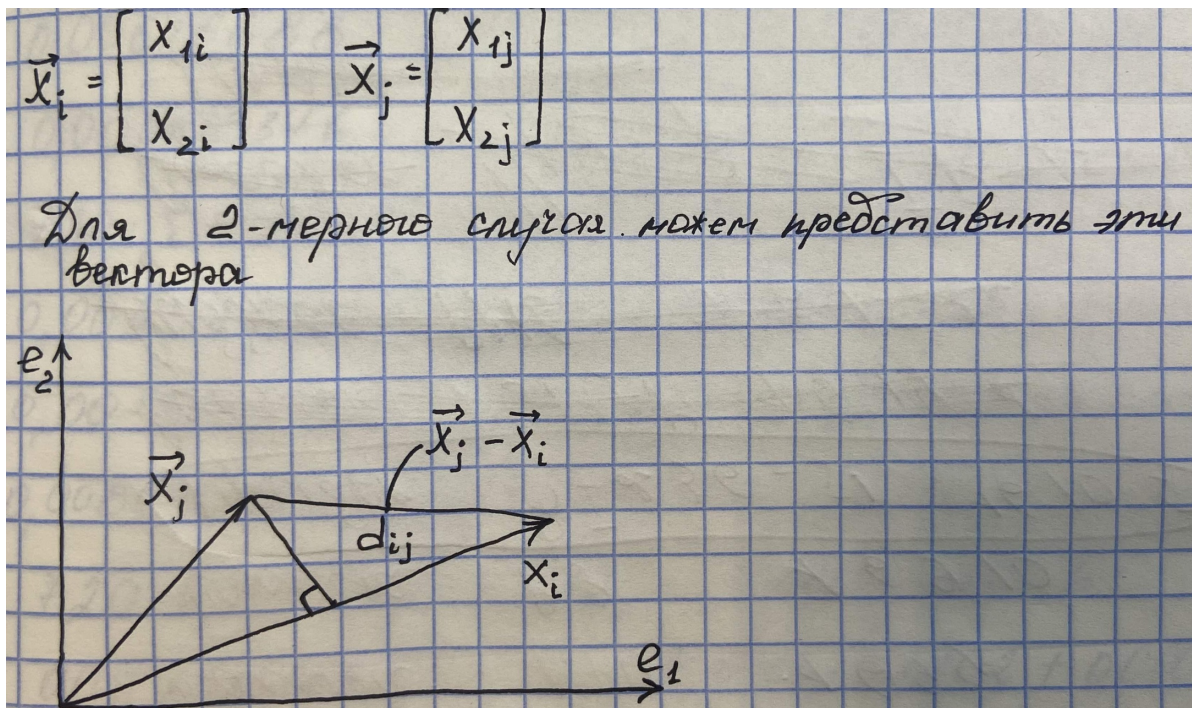 x⃗ᵢ = [x₁ᵢ x₂ᵢ] x⃗ⱼ = [x₁ⱼ x₂ⱼ]
Для 2-мерного случая можем представить эти
вектора
e₂
x⃗ⱼ - x⃗ᵢ
x⃗ⱼ
dᵢⱼ
xᵢ
e₁